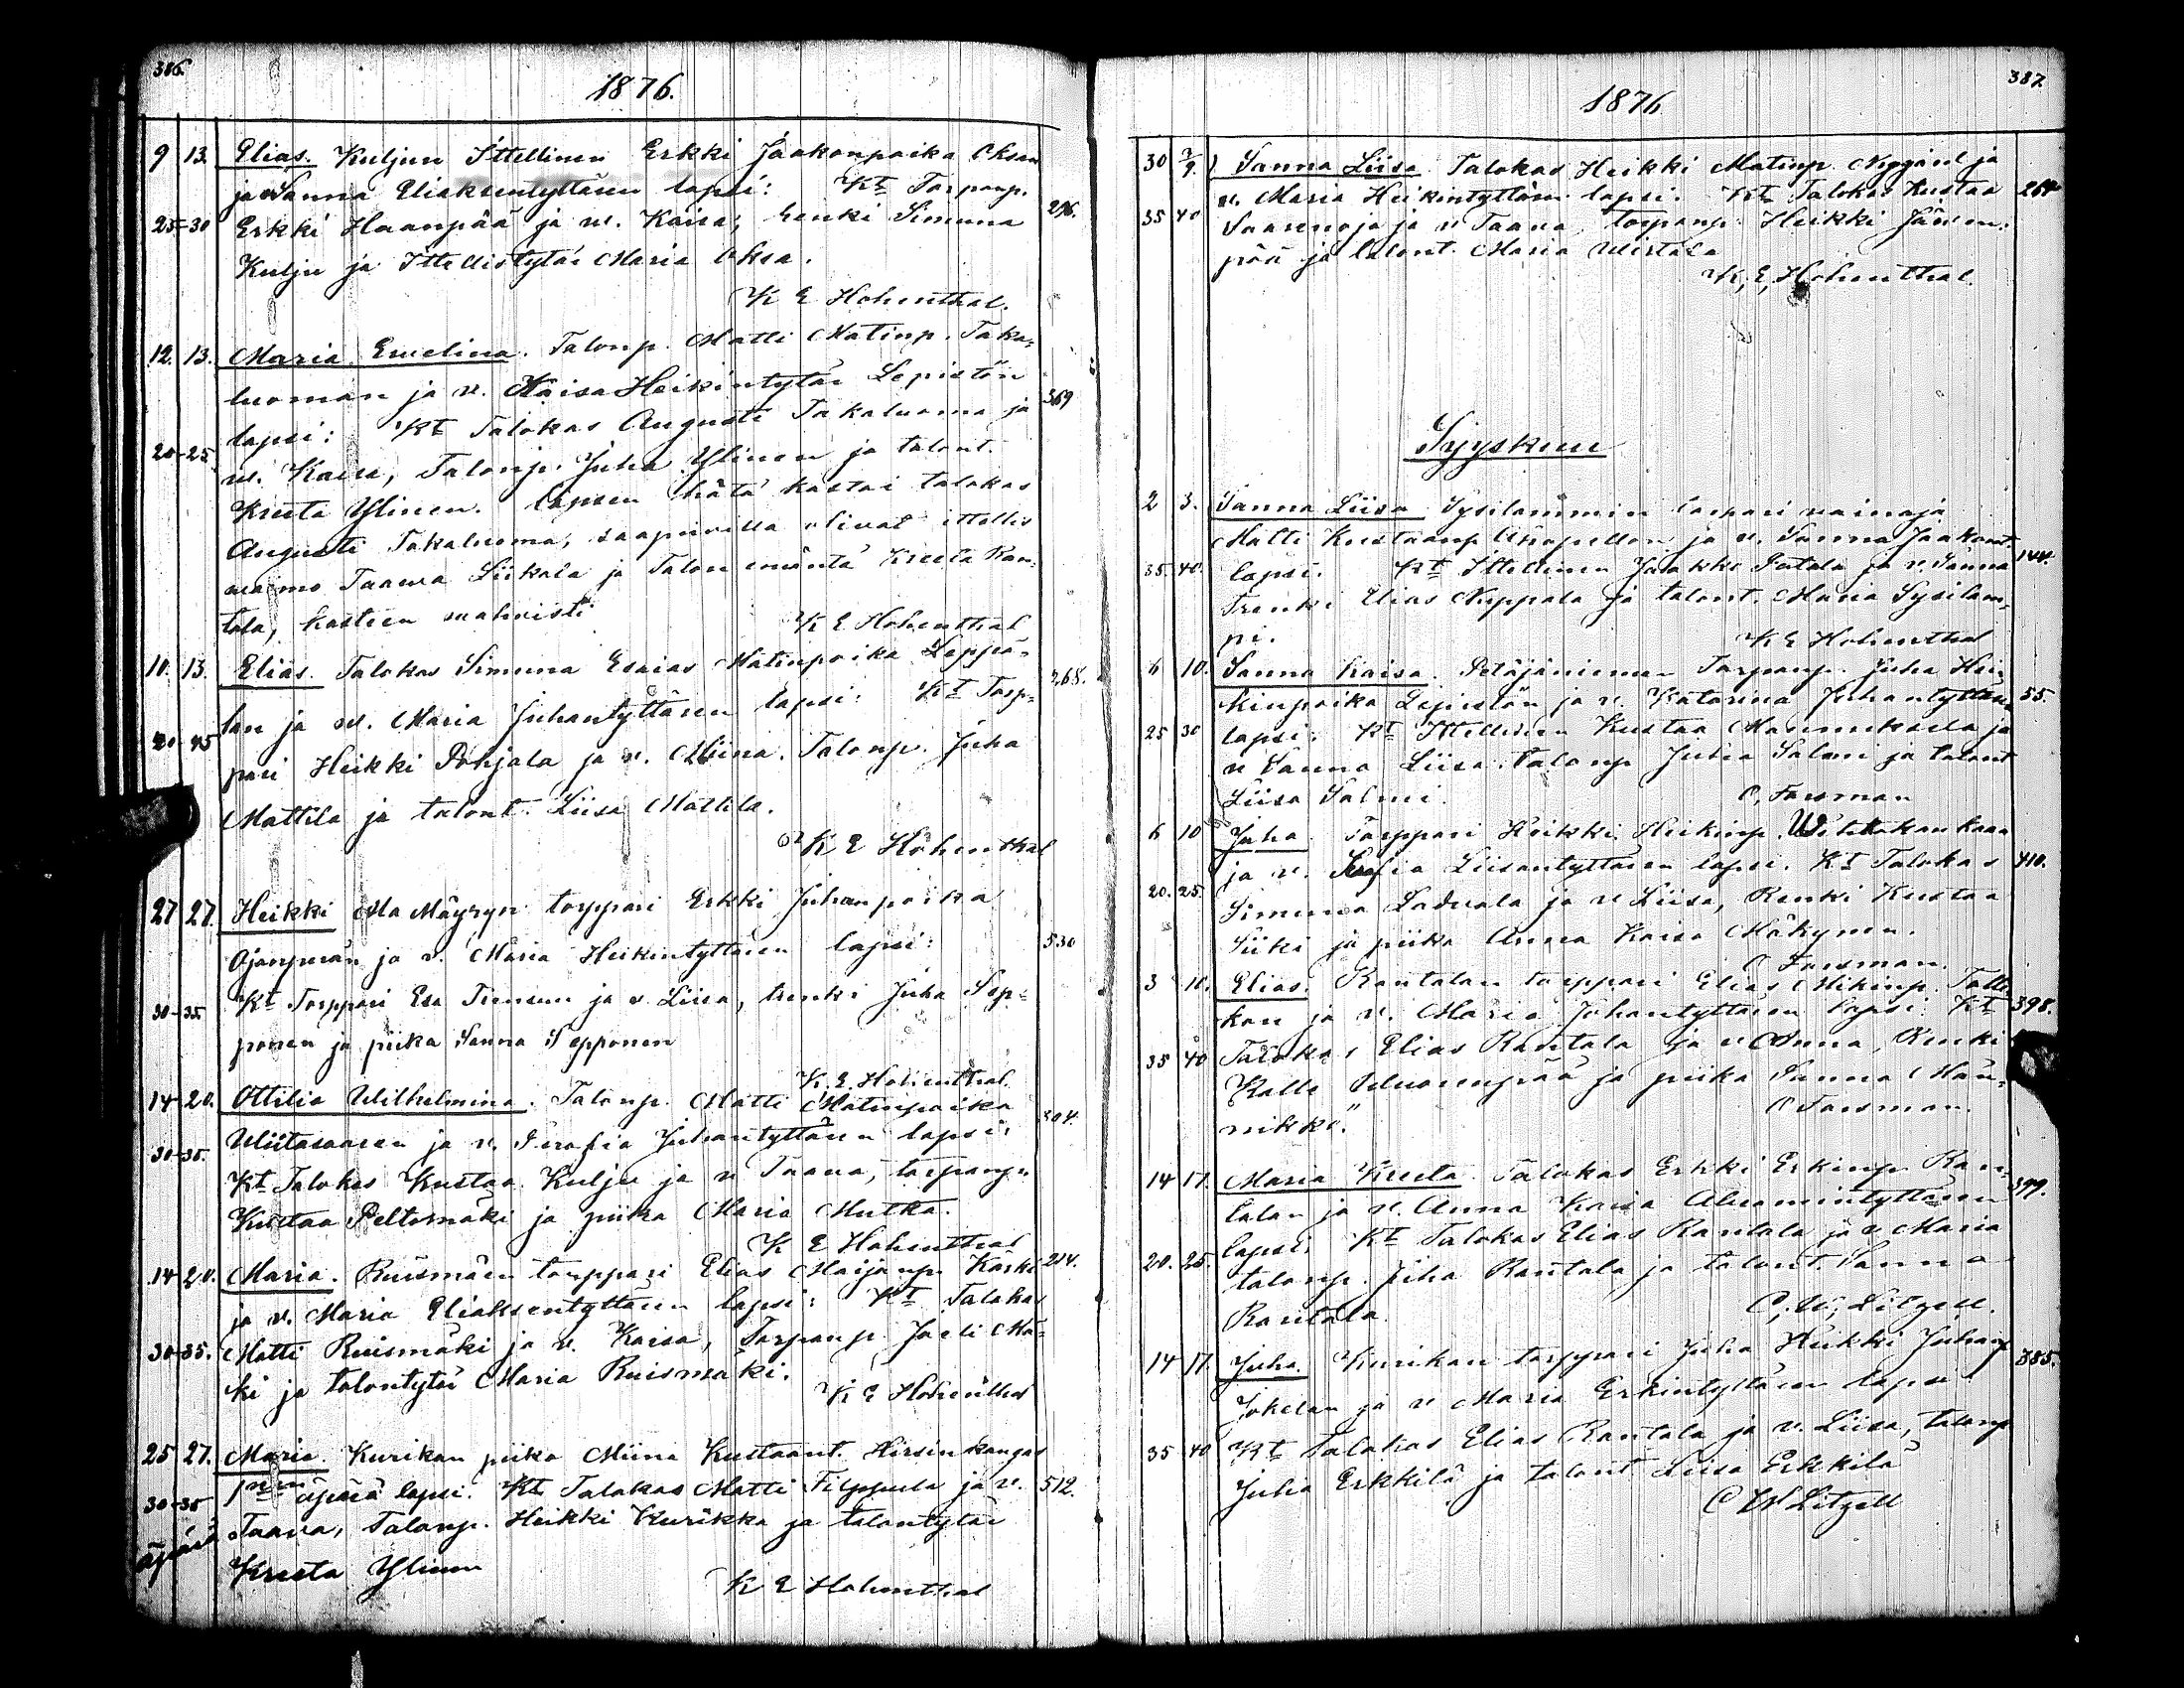 386.
1876.
9 13. Elias. Kuljun Ittellinen Erkki Jaakonpoika Oksan
ja Sanna Eliaksentyttären lapsi: Kt Torpanp.
25-30 Erkki Haanpää ja v. Kaisa; renki Simuna 296.
Kulju ja Ittellistytär Maria Oksa.
K E Hohenthal.
12. 13. Maria Ewelina. Talonp. Matti Matinp. Taka-
luoman ja v. Kaisa Heikintytär Lepistön 369
lapsi: Kt Talokas Augusti Takaluoma ja
20-25 v. Kaisa, Talonp. Juha Ylinen ja talont.
Kreeta Ylinen. Lapsen hätä kastoi talokas
Augusti Takaluoma, saapuvilla olivat ittellis
vaimo Taava Liikala ja Talon emäntä Kreeta Ran-
tala, kasteen vahvisti
K E Hohenthal
10. 13. Elias. Talokas Simuna Esaias Matinpoika Leppä- 268.
lan ja v. Maria Juhantyttären lapsi: Kt Torp-
40 45 pari Heikki Pohjala ja v. Miina. Talonp. Juha
Mattila ja talont. Liisa Mattila.
K E Hohenthal
27 27. Heikki Ala Mäyryn torppari Erkki Juhanpoika
Ojanperän ja v. Maria Heikintyttären lapsi: 530
30-35 Kt Torppari Esa ja v. Liisa, trenki Juha Sep-
ponen ja piika Sanna Sepponen
K. E. Hohenthal
14-20. Ottilia Wilhelmina. Talonp. Matti Matinpoika
Wiitasaaren ja v. Serafia Juhantyttären lapsi: 304.
30-35. Kt Talokas Kustaa Kulju ja v Taava, torpanp
Kustaa Peltomäki ja piika Maria Mutka.
K E Hohenthal
14-20. Maria. Ruismäen torppari Elias Maijanp. Kärki 214.
ja v. Maria Eliaksentyttären lapsi: Kt Talokas
30-35. Matti Ruismäki ja v. Kaisa, Torpanp. Mä-
ki ja talontytär Maria Ruismäki.
K E Hohenthal
25 27. Maria. Kurikan piika Miina Kustaant. Hirsinkangas
äpärä lapsi. Kt Talokas Matti Filppula ja v. 512.
30-35 Taava, Talonp. Heikki Kurikka ja talontytär
äpärä Kreeta Ylinen
K E Hohenthal
387.
1876
30 3/9. Sanna Liisa Talokas Heikki Matinp. Nygård ja
v. Maria Heikintyttären lapsi. Kt Talokas Kustaa 264
35 40 Saarenoja ja v Taava, torpanp. Heikki Jämen-
pää ja talont. Maria
K, E, Hohenthal.
Syyskuu
2 3. Sanna Liisa Sysilammin vainaja
Matti Kustaanp ja v. Sanna Jaakont.
35. 40. lapsi. Kt Ittellinen Jaakko ja v. Sanna 144.
Trenki Elias Nuppala ja talont. Maria Sysilam-
pi. K E Hohenthal
6 10. Sanna Kaisa. Petäjäniemen Torpanp. Juha Hei-
kinpoika Lepistön ja v. Katarina Juhantyttären 55.
25 30 lapsi: Kt Ittellinen Kustaa Mannikkela ja
v Sanna Liisa. Talonp Juha Salmi ja talont
Liisa Salmi. O, Forsman
6 10 Juha. Torppari Heikki Heikinp.
ja v. Serafia Liisantyttären lapsi. Kt Talokas 410.
20. 25. Simuna Laduala ja v Liisa, Renki Kustaa
Siiki ja piika Anna Kaisa Mäkynen.
O Forsman.
3 10. Elias. Rantalan torppari Elias Mikinp.
kan ja v. Maria Juhantyttären lapsi Kt 398.
35 40 Talokas Elias Rantala ja v Anna, Renki
Kalle ja piika Sanna Män-
nikkö". O Forsman.
14 17. Maria Kreeta Talokas Erkki Erkinp. Ran- 399.
talan ja v. Anna Kaisa
lapsi: Kt Talokas Elias Rantala ja v Maria
20. 25. talonp. Juha Rantala ja talont. Sanna
Rantala. C, W, Litzell.
14 17. Juha. Kurikan torppari Juha Heikki Juhanp 385.
Jokelan ja v Maria Erkintyttären lapsi
35 40 Kt Talokas Elias Rantala ja v. Liisa, talonp
Juha Erkkilä ja talont Liisa Erkkilä
C W Litzell